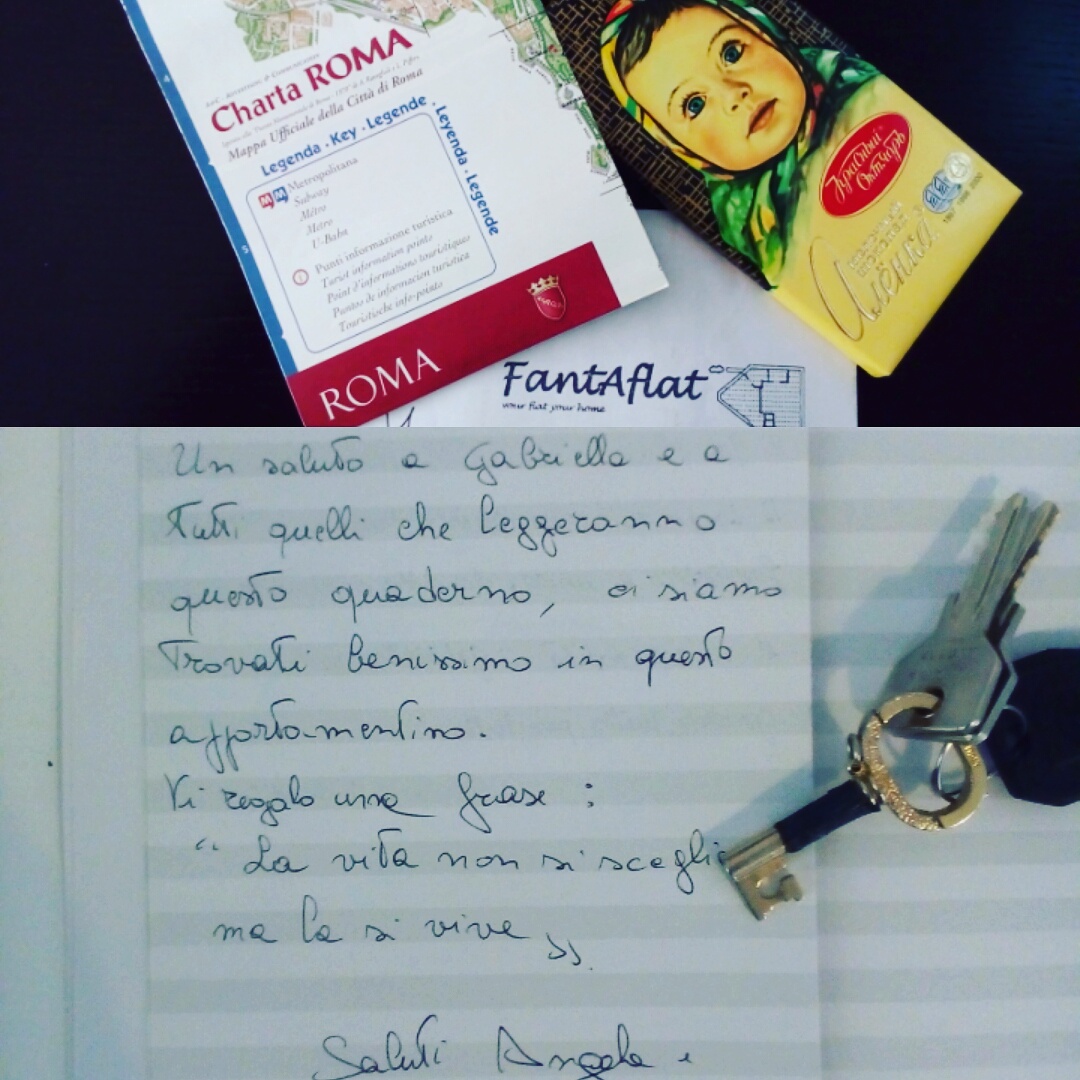 Charta ROMA
Mappa Ufficiale della Città di Roma
Legenda . Key . Legende . Leyenda . Legende
MM Metropolitana
Subway
Métro
Metro
U-Bahn
i Punti informazione turistica
Turist information points
Point d'informations touristiques
Puntos de informacion turistica
Touristische info-points
ROMA
Красный
Октябрь
Алёнка
FantAflat
your flat your home
Un saluto a Gabriella e a
tutti quelli che leggeranno
questo quaderno, ci siamo
trovati benissimo in questo
appartamentino.
Vi regalo una frase :
“ La vita non si sceglie
ma la si vive ”.
Saluti Angela e